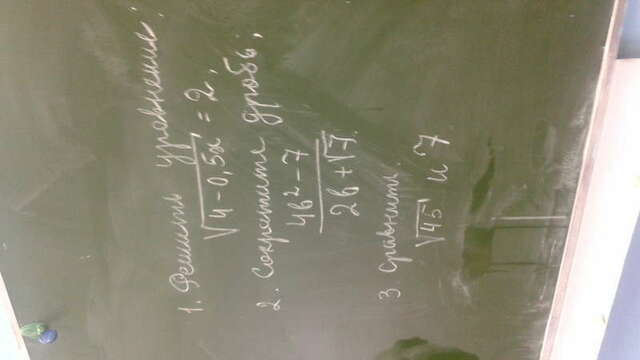 1. Решить уравнение:
√4-0,5x = 2.
2. Сократите дробь:
4b²-7
2b+√7.
3 Сравнить.
√45 и 7